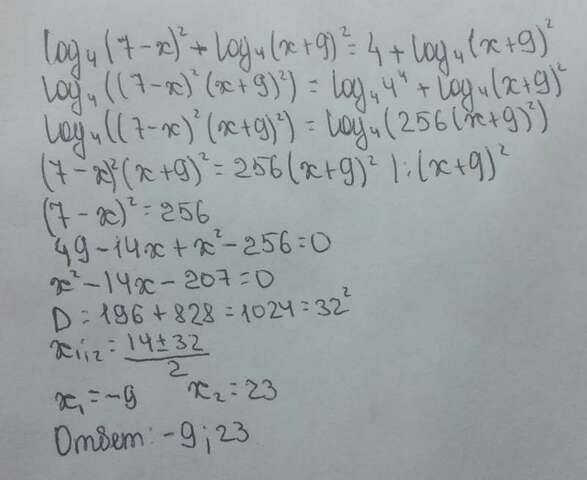 log₄(7-x)² + log₄(x+9)² = 4 + log₄(x+9)²
log₄((7-x)²(x+9)²) = log₄4⁴ + log₄(x+9)²
log₄((7-x)²(x+9)²) = log₄(256(x+9)²)
(7-x)²(x+9)² = 256(x+9)² |:(x+9)²
(7-x)² = 256
49-14x+x²-256=0
x²-14x-207=0
D = 196+828=1024=32²
x₁;₂ = (14±32)/2
x₁=-9 x₂=23
Ответ: -9;23